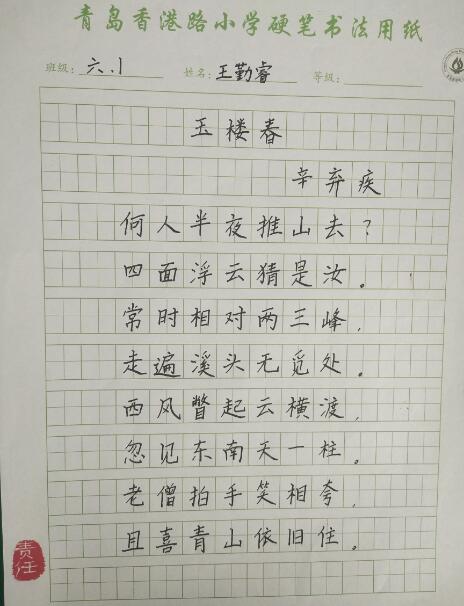 青岛香港路小学硬笔书法用纸
班级: 六.1 姓名: 王勤睿 等级:
玉楼春
辛弃疾
何人半夜推山去?
四面浮云猜是汝。
常时相对两三峰,
走遍溪头无觅处。
西风瞥起云横渡,
忽见东南天一柱。
老僧拍手笑相夸,
且喜青山依旧住。
责任